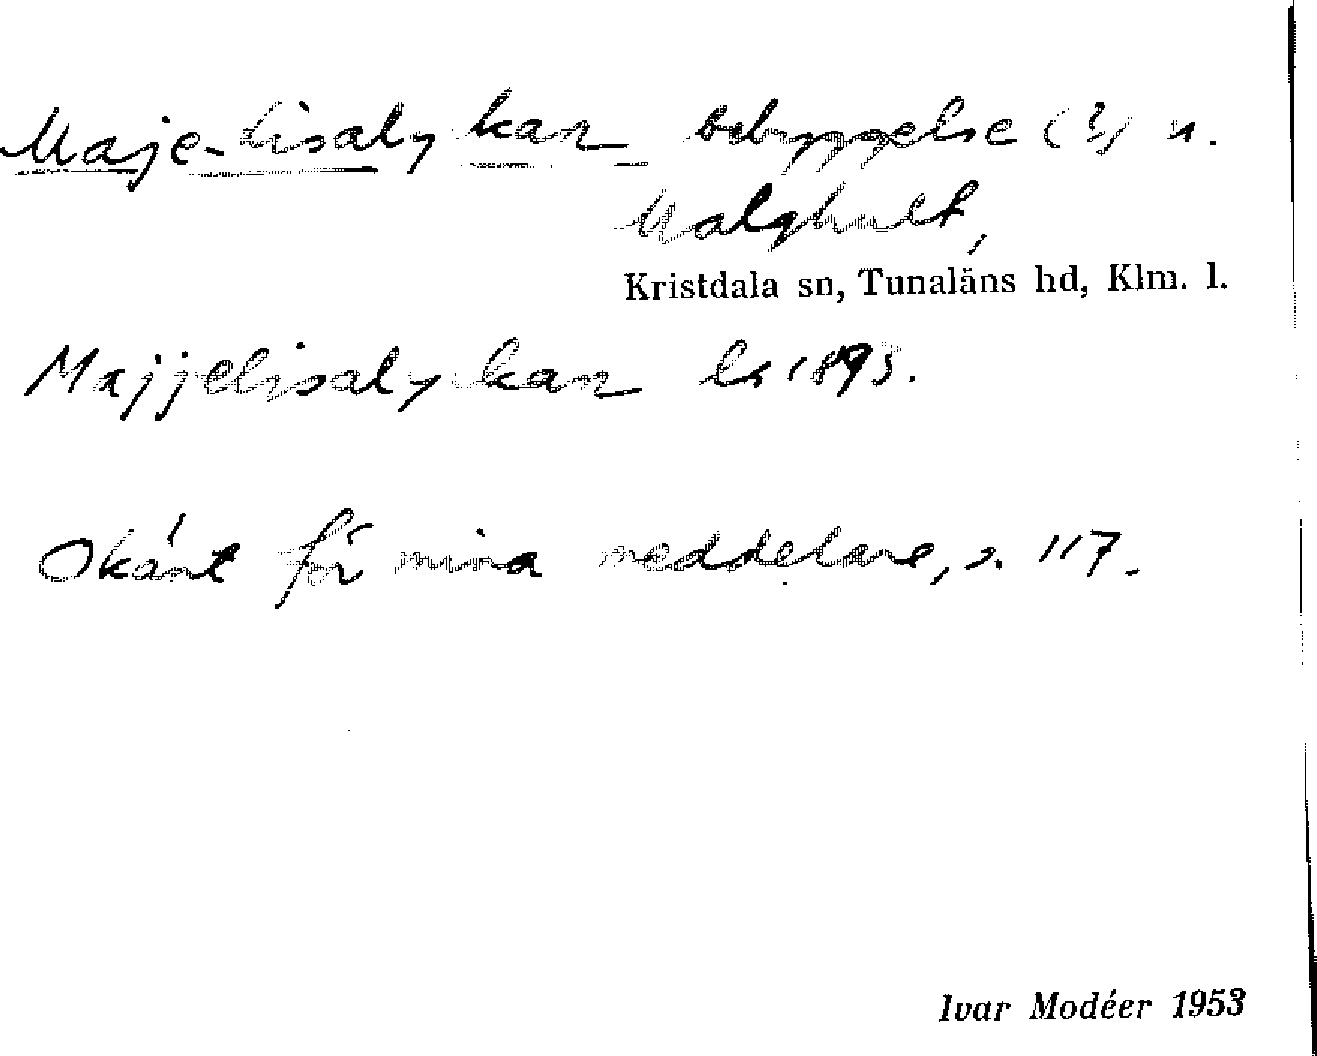 Maje-Lisalyckan bebyggelse (?) u.
Malghult,
Kristdala sn, Tunaläns hd, Klm. l.
Majjelisalyckan lr 1893.
Okänt för mina meddelare, s. 117.
Ivar Modéer 1953